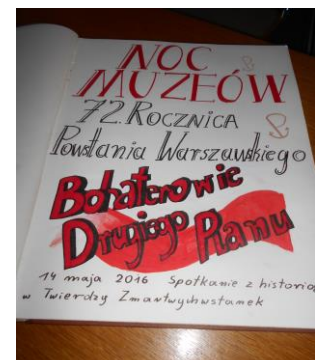 NOC
MUZEÓW
72. ROCZNICA
Powstania Warszawskiego
Bohaterowie
Drugiego Planu
14 maja 2016 Spotkanie z historią
w Twierdzy Zmartwychwstanek